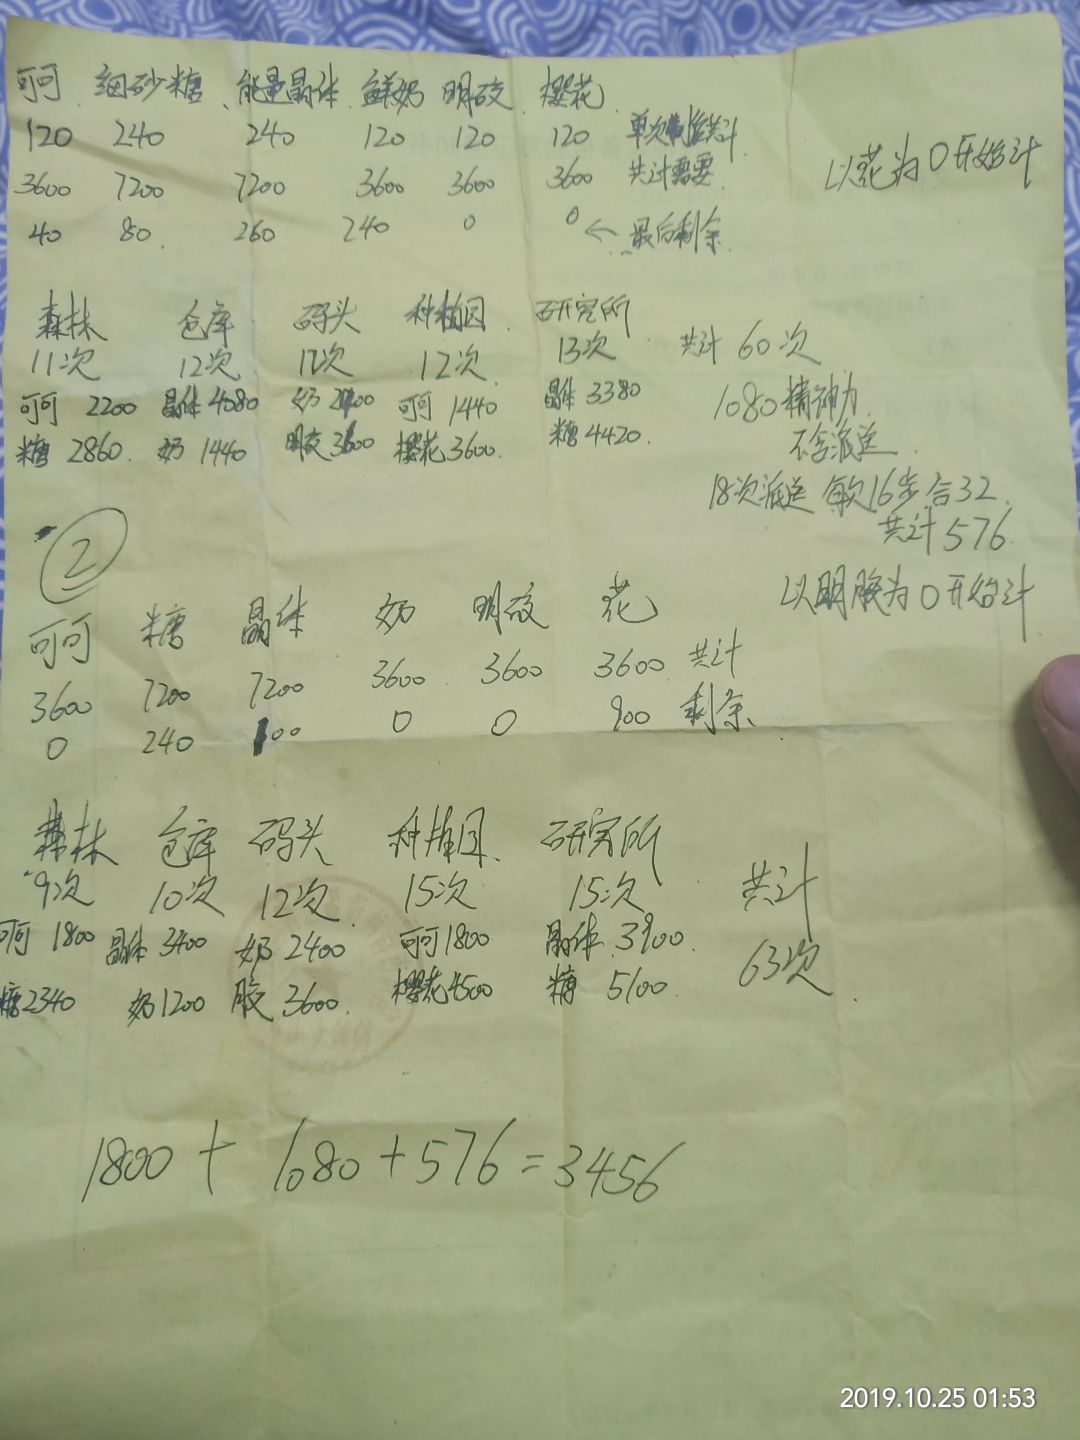 可可 细砂糖 能量晶体 鲜奶 明胶 樱花
120 240 240 120 120 120 单次制作共计
3600 7200 7200 3600 3600 3600 共计需要
以花为0开始计
40 80 260 240 0 0 ← 最后剩余
森林 仓库 码头 种植园 研究所
11次 12次 12次 12次 13次 共计 60次
可可 2200 晶体 4080 奶 2400 可可 1440 晶体 3380
糖 2860 奶 1440 明胶 3600 樱花 3600 糖 4420
1080精神力
不含派送
18次派送 每次16步合32
共计 576
②
以明胶为0开始计
可可 糖 晶体 奶 明胶 花
3600 7200 7200 3600 3600 3600 共计
0 240 100 0 0 900 剩余
森林 仓库 码头 种植园 研究所
9次 10次 12次 15次 15次 共计
可可 1800 晶体 3400 奶 2400 可可 1800 晶体 3900 63次
糖 2340 奶 1200 胶 3600 樱花 4500 糖 5100
1800 + 1080 + 576 = 3456
2019.10.25 01:53